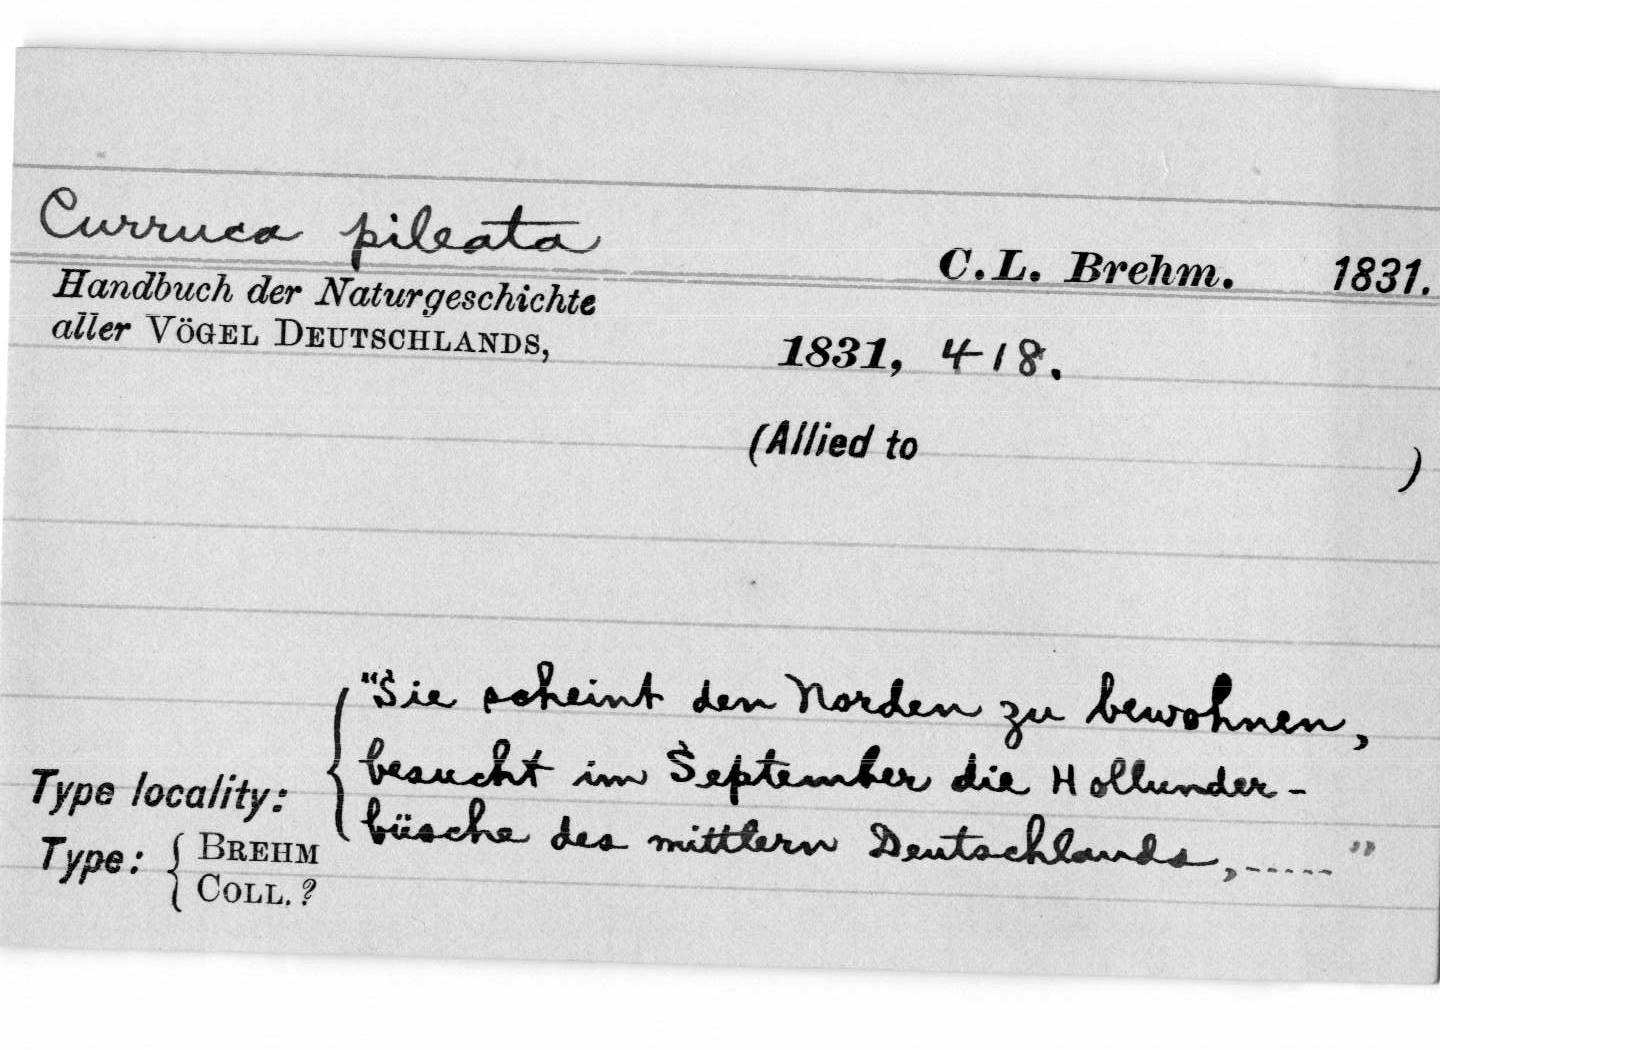 Curruca pileata
C.L. Brehm. 1831.
Handbuch der Naturgeschichte
aller VÖGEL DEUTSCHLANDS,
1831, 418.
(Allied to )
"Sie scheint den Norden zu bewohnen,
besucht im September die Hollunder-
büsche des mittlern Deutschlands,-----"
Type locality:
Type: { BREHM
COLL. ?